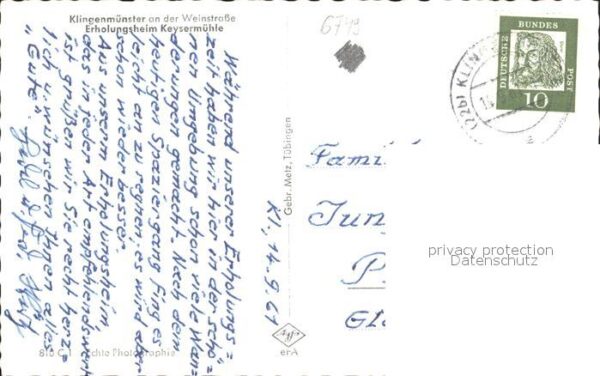 Klingenmünster an der Weinstraße
Erholungsheim Keysermühle
6749
DEUTSCHE BUNDESPOST
10
(22b) KLIN
Gebr. Metz, Tübingen
Kl., 14.9.61
Während unserer Erholungs=
zeit haben wir hier in der schö=
nen Umgebung schon viele Wan=
derungen gemacht. Nach dem
heutigen Spaziergang fing es
leicht an zu regnen, es wird aber
schon wieder besser.
Aus unserem Erholungsheim
das in jeder Art empfehlenswert
ist grüßen wir Sie recht herz=
lich u. wünschen Ihnen alles
"Gute".
Famil
Jun
P
Gl
privacy protection
Datenschutz
Agfa
erA
810 C 1 Echte Photographie